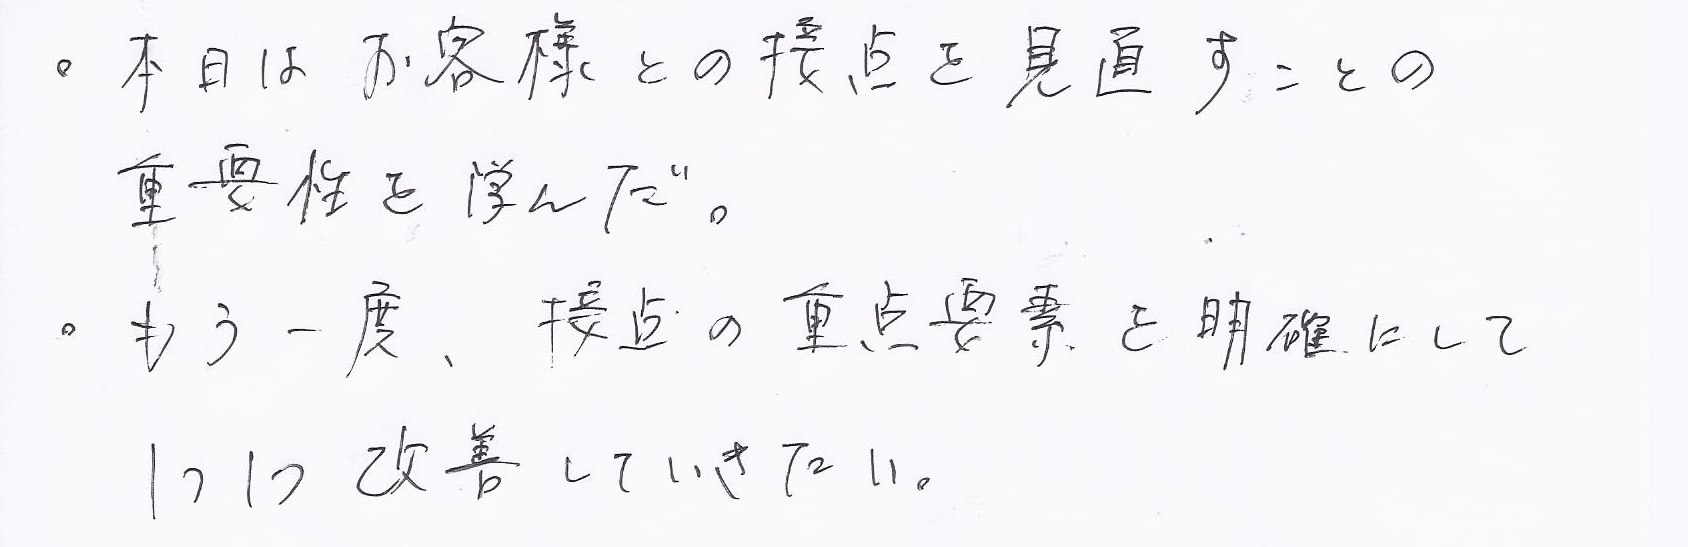 ・本日はお客様との接点を見直すことの
重要性を学んだ。
・もう一度、接点の重点要素を明確にして
1つ1つ改善していきたい。